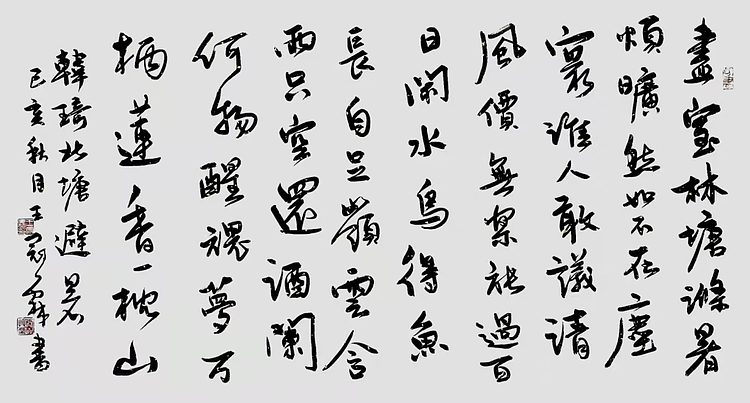 盡室林塘滌暑
煩曠然如不在塵
寰誰人敢議清
風價無樂能過百
日閑水鳥得魚
長自足嶺雲含
雨只空還酒闌
何物醒魂夢万
柄蓮香一枕山
韓琦北塘避暑
己亥秋月王冠書